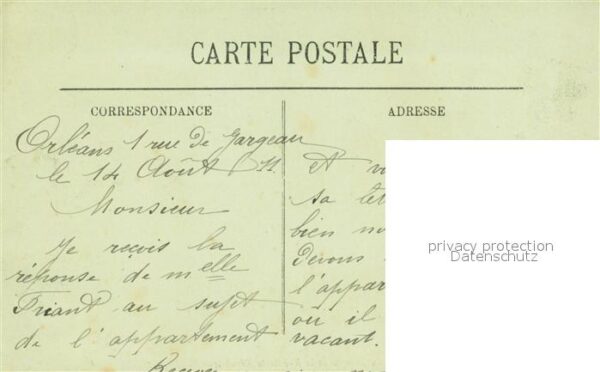 CARTE POSTALE
CORRESPONDANCE
Orléans 1 rue de Jargeau
le 14 Août 11
Monsieur
Je reçois la
réponse de melle
Triant au sujet
de l'appartement
ADRESSE
sa
bien
l'appar
ou il
vacant.
privacy protection
Datenschutz